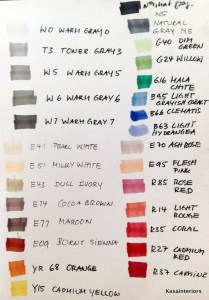 W0 WARM GRAY 0
T3 TONER GRAY 3
W5 WARM GRAY 5
W6 WARM GRAY 6
W7 WARM GRAY 7
E41 PEARL WHITE
E51 MILKY WHITE
E43 DULL IVORY
E74 COCOA BROWN
E77 MAROON
E09 BURNT SIENNA
YR 68 ORANGE
Y15 CADMIUM YELLOW
N5
NATURAL
GRAY N5
G40 DIM
GREEN
G24 WILLOW
G16 MALA
CHITE
B45 LIGHT
GRAYISH COBALT
B66 CLEMATIS
B63 LIGHT
HYDRANGEA
E70 ASH ROSE
E95 FLESH
PINK
R85 ROSE
RED
R14 LIGHT
ROUGE
R35 CORAL
R27 CADMIUM
RED
R37 CARMINE
Kasainteriors